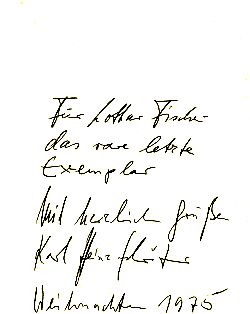 Für Lothar Fischer
das rare letzte
Exemplar
Mit herzlich Grüßen
Karl Heinz
Weihnachten 1975